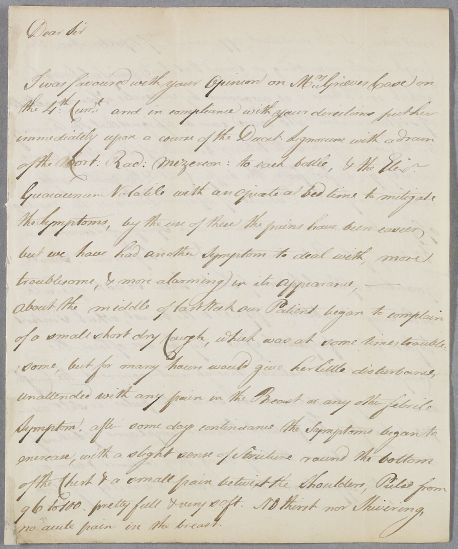 Dear Sir
I was favour'd with your Opinion on Mrs Grieves Case on
the 4th Curr.t and in compliance with your directions, put her
immediately upon a course of the Decoct: Lignorum with a dram
of the Cort: Rad: Mezereon: to each bottle, & the Elix
Guaiacinum Volatile with an opiate at Bed time to mitigate
the Symptoms, by the use of these the pains have been easier
but we have had another Symptom to deal with, more
troublesome, & more alarming in its appearance, —
about the middle of last Week our Patient began to complain
of a small short dry Cough, which was at some times trouble
some, but for many hours would give her little disturbance,
unattended with any pain in the Breast or any other febrile
Symptom, after some days continuance the Symptoms began to
encrease, with a slight sense of Stricture round the bottom
of the Chest & a small pain betwixt the Shoulders, Pulse from
96 to 100. pretty full & very soft. No thirst nor Shivering,
no acute pain in the breast.